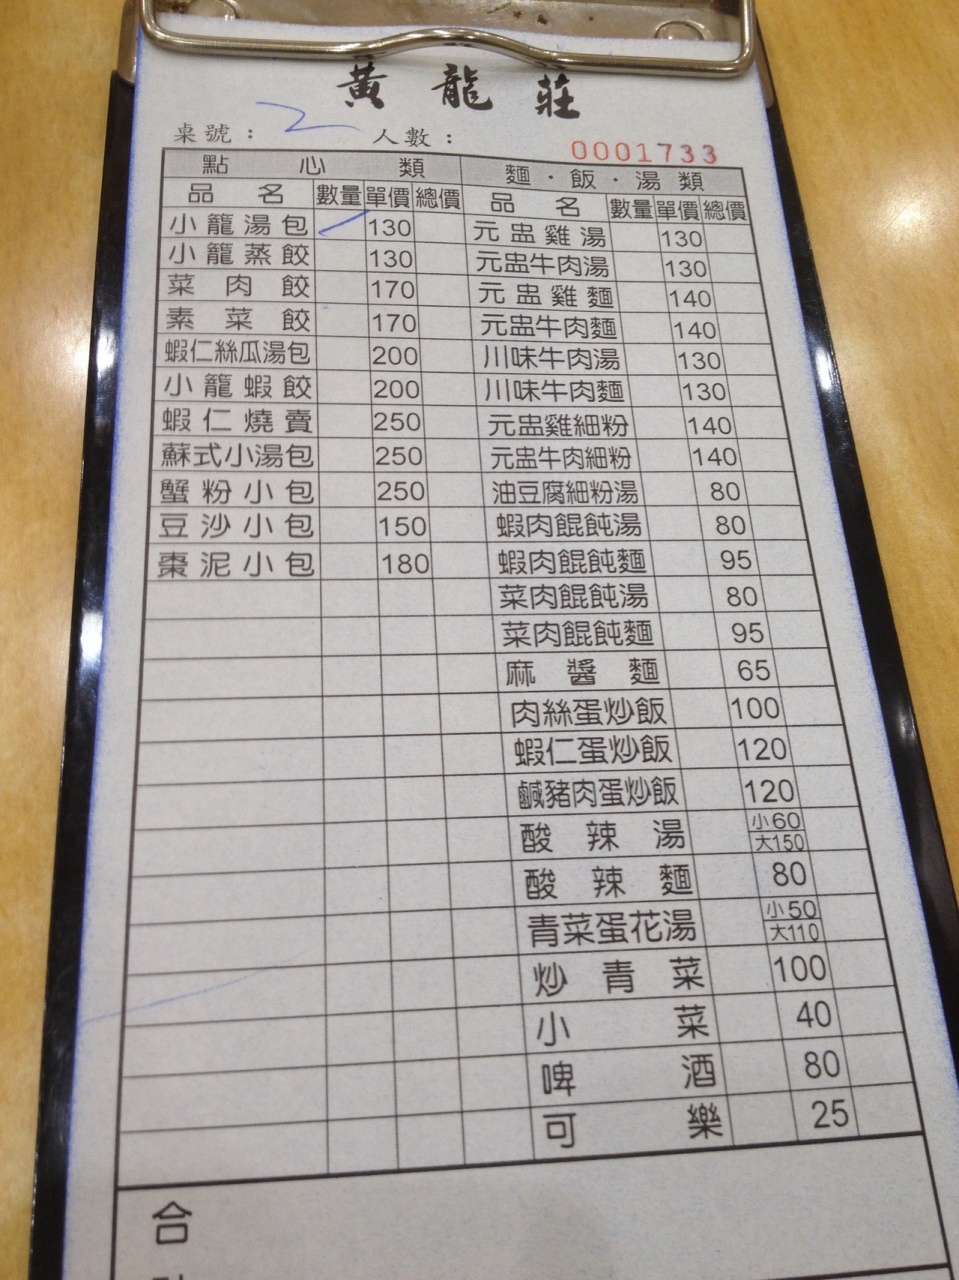 黃龍莊
桌號： 2 人數：
0001733
點心類
品名 數量 單價 總價
小籠湯包 130
小籠蒸餃 130
菜肉餃 170
素菜餃 170
蝦仁絲瓜湯包 200
小籠蝦餃 200
蝦仁燒賣 250
蘇式小湯包 250
蟹粉小包 250
豆沙小包 150
棗泥小包 180
麵·飯·湯類
品名 數量 單價 總價
元盅雞湯 130
元盅牛肉湯 130
元盅雞麵 140
元盅牛肉麵 140
川味牛肉湯 130
川味牛肉麵 130
元盅雞細粉 140
元盅牛肉細粉 140
油豆腐細粉湯 80
蝦肉餛飩湯 80
蝦肉餛飩麵 95
菜肉餛飩湯 80
菜肉餛飩麵 95
麻醬麵 65
肉絲蛋炒飯 100
蝦仁蛋炒飯 120
鹹豬肉蛋炒飯 120
酸辣湯 小60
大150
酸辣麵 80
青菜蛋花湯 小50
大110
炒青菜 100
小菜 40
啤酒 80
可樂 25
合